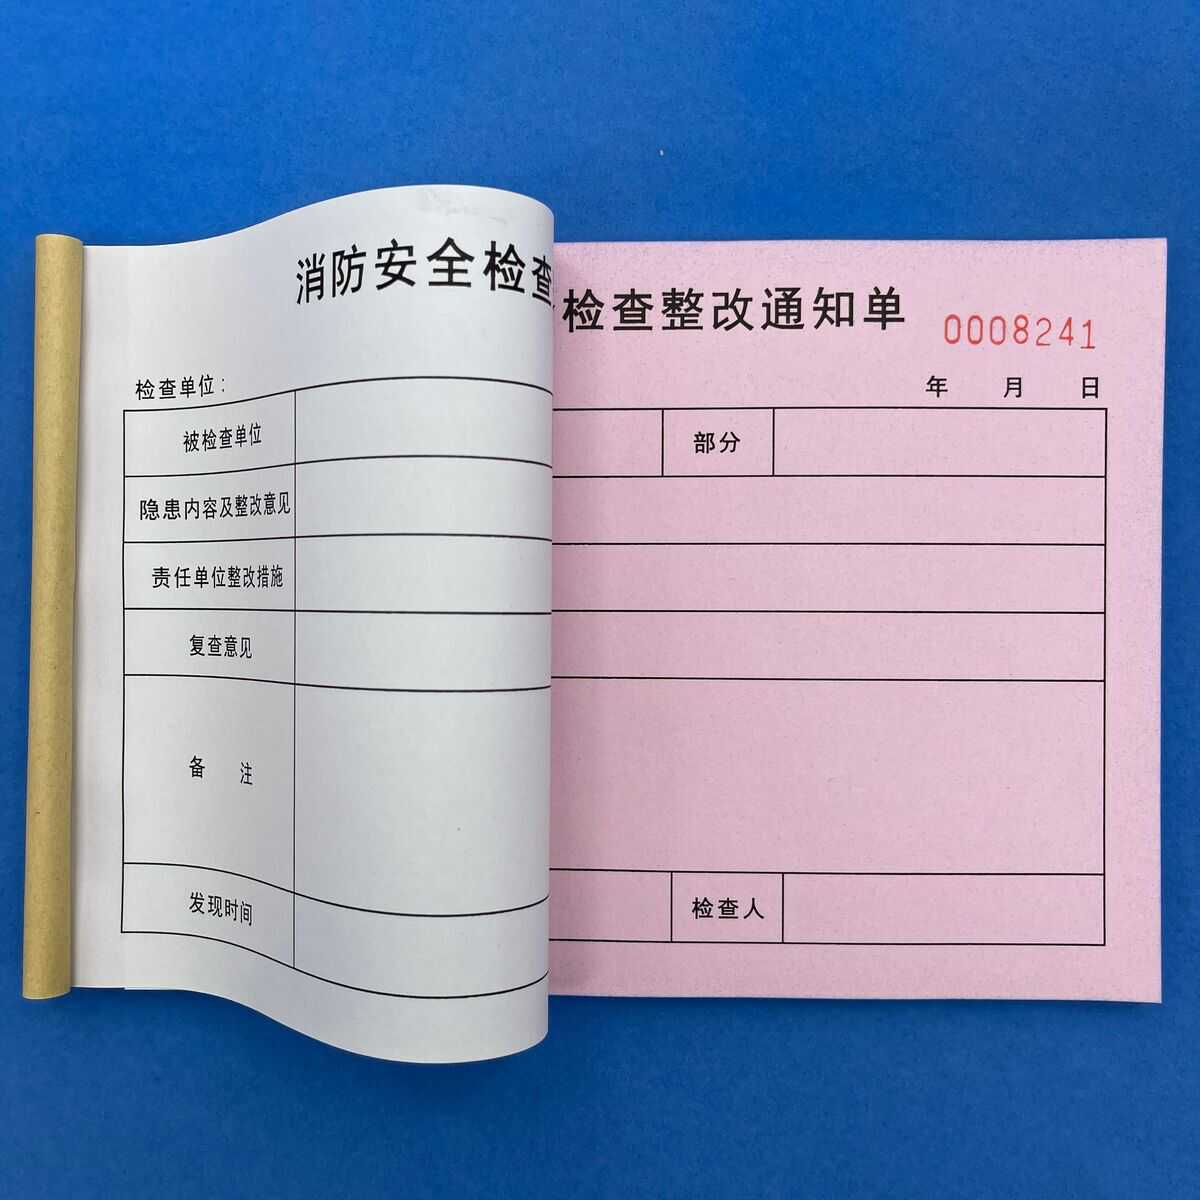 消防安全检查
检查整改通知单
0008241
检查单位：
年 月 日
被检查单位
部分
隐患内容及整改意见
责任单位整改措施
复查意见
备 注
发现时间
检查人